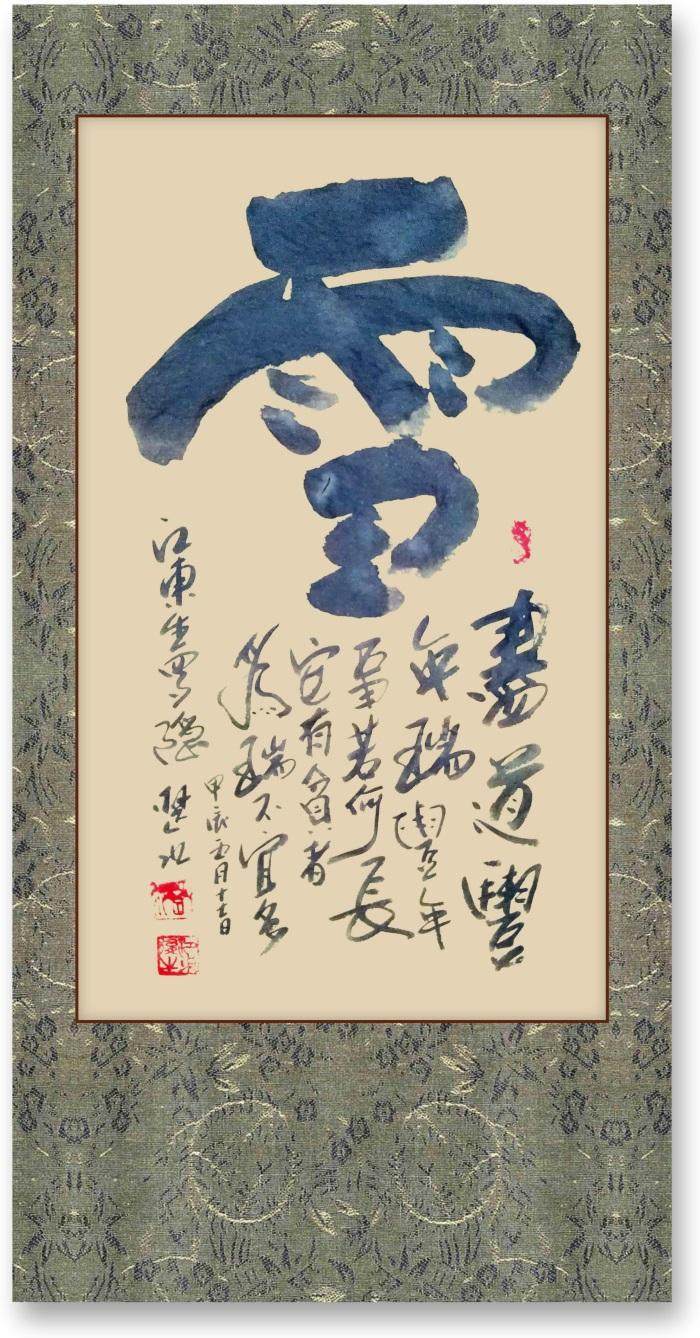 雪
盡道豐
年瑞豐年
事若何長
安有貧者
為瑞不宜多
甲辰五月
江東生羅隱